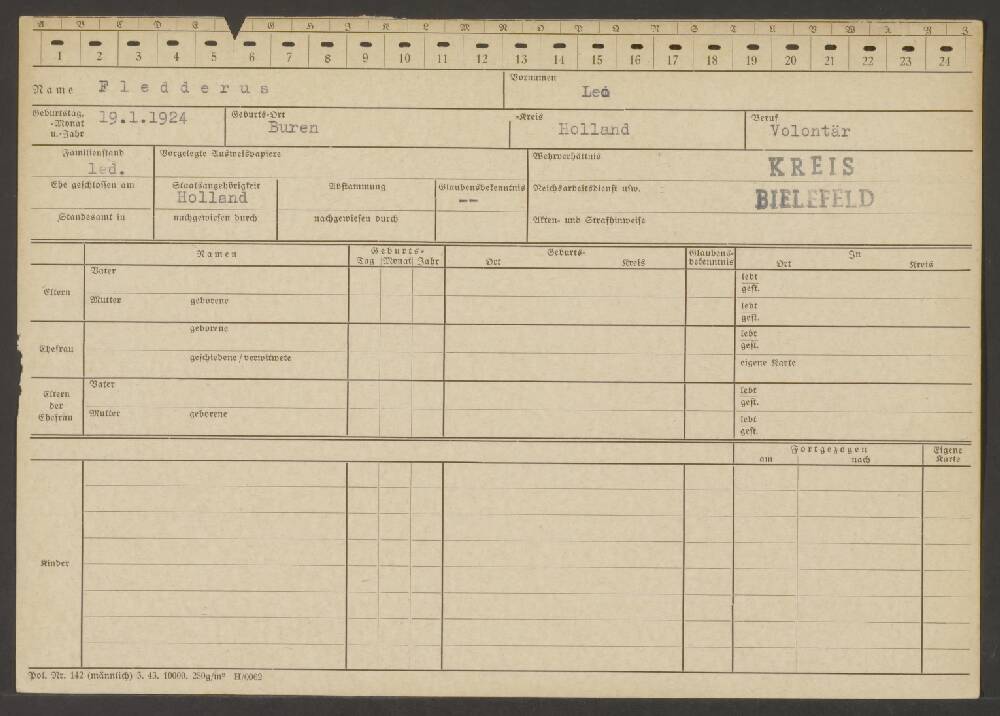 A B C D E F G H J K L M N O P Q R S T U V W X Y Z
1 2 3 4 5 6 7 8 9 10 11 12 13 14 15 16 17 18 19 20 21 22 23 24
Name Fledderus Vornamen Leo
Geburtstag, -Monat u.-Jahr 19.1.1924 Geburts-Ort Buren -Kreis Holland Beruf Volontär
Familienstand led. Vorgelegte Ausweispapiere Wehrverhältnis KREIS
BIELEFELD
Ehe geschlossen am Staatsangehörigkeit Holland Abstammung Glaubensbekenntnis -- Reichsarbeitsdienst usw.
Standesamt in nachgewiesen durch nachgewiesen durch Akten- und Strafhinweise
Namen Geburts- Geburts- Glaubens- In
Tag Monat Jahr Ort Kreis bekenntnis Ort Kreis
Eltern Vater lebt
gest.
Mutter geborene lebt
gest.
Ehefrau geborene lebt
gest.
geschiedene/verwitwete eigene Karte
Eltern der Ehefrau Vater lebt
gest.
Mutter geborene lebt
gest.
Fortgezogen Eigene
am nach Karte
Kinder
Pol. Nr. 142 (männlich) 3. 43. 10000. 250g/m² H/0062